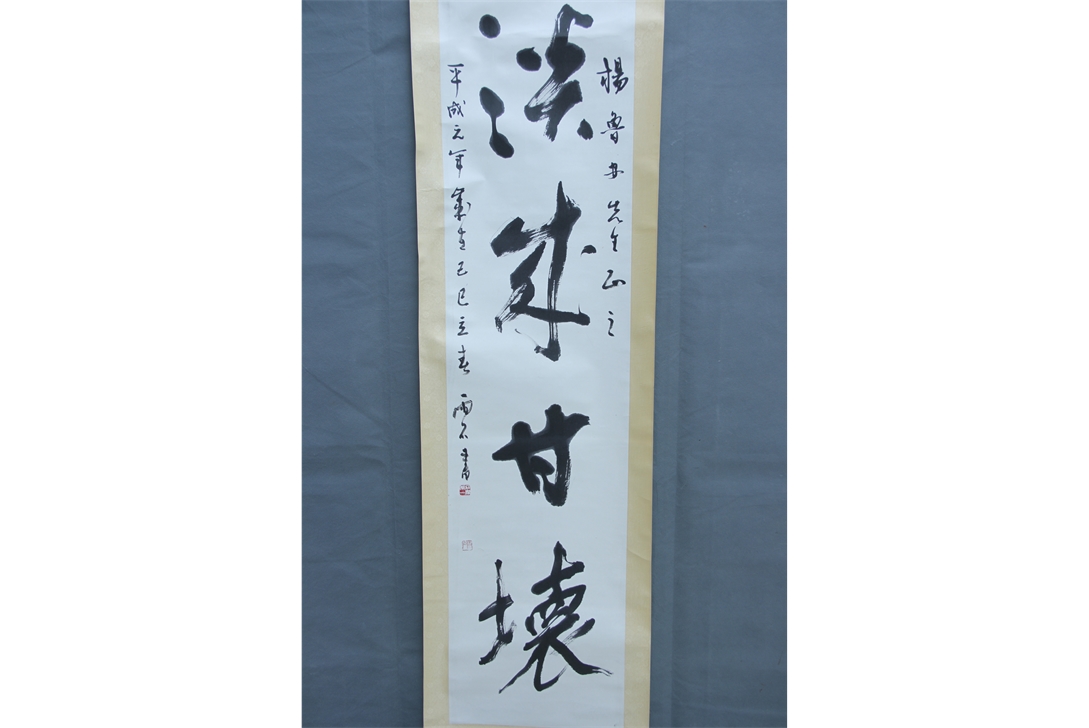 楊魯安先生正之
淡成甘壞
平成元年歲在己巳立春雨石書